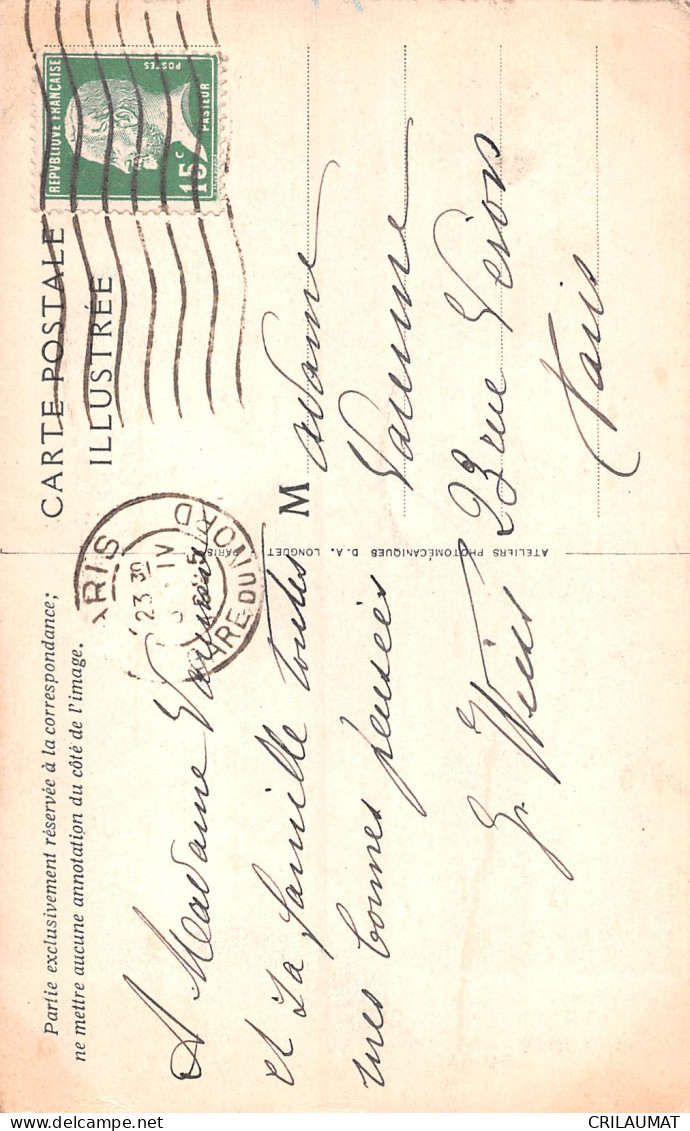 Partie exclusivement réservée à la correspondance;
ne mettre aucune annotation du côté de l'image.
A Madame
et Sa famille toutes
mes bonnes pensées
ATELIERS PHOTOMÉCANIQUES D. A. LONGUET PARIS
CARTE POSTALE
ILLUSTRÉE
REPVBLIQVE FRANÇAISE
POSTES
PASTEUR
15c
PARIS
23 30
IV
GARE DU NORD
Madame
23 rue Véron
Paris
CRILAUMAT